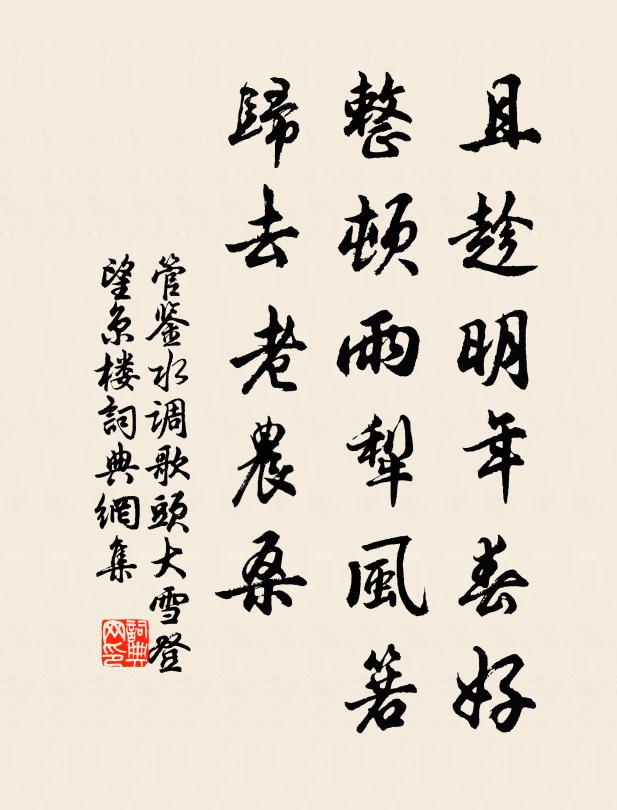 且趁明年春好
整頓雨犁風箬
歸去老農桑
管鉴水调歌頭大雪登
望京楼詞典網集
詞典网印